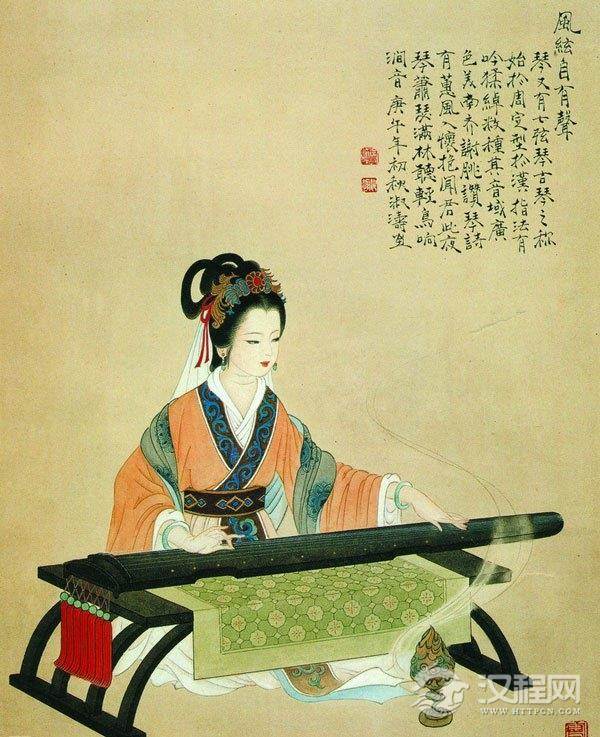 風絃自有聲
琴又有七弦琴古琴之称
始於周定型於漢指法有
吟猱綽数種其音域廣
色美南齐謝朓讚琴詩
有蕙風入懷抱聞君此夜
琴蕭瑟滿林聽輕鳥响
澗音庚午年初秋淑濤画
汉程网
WWW.HTTPCN.COM